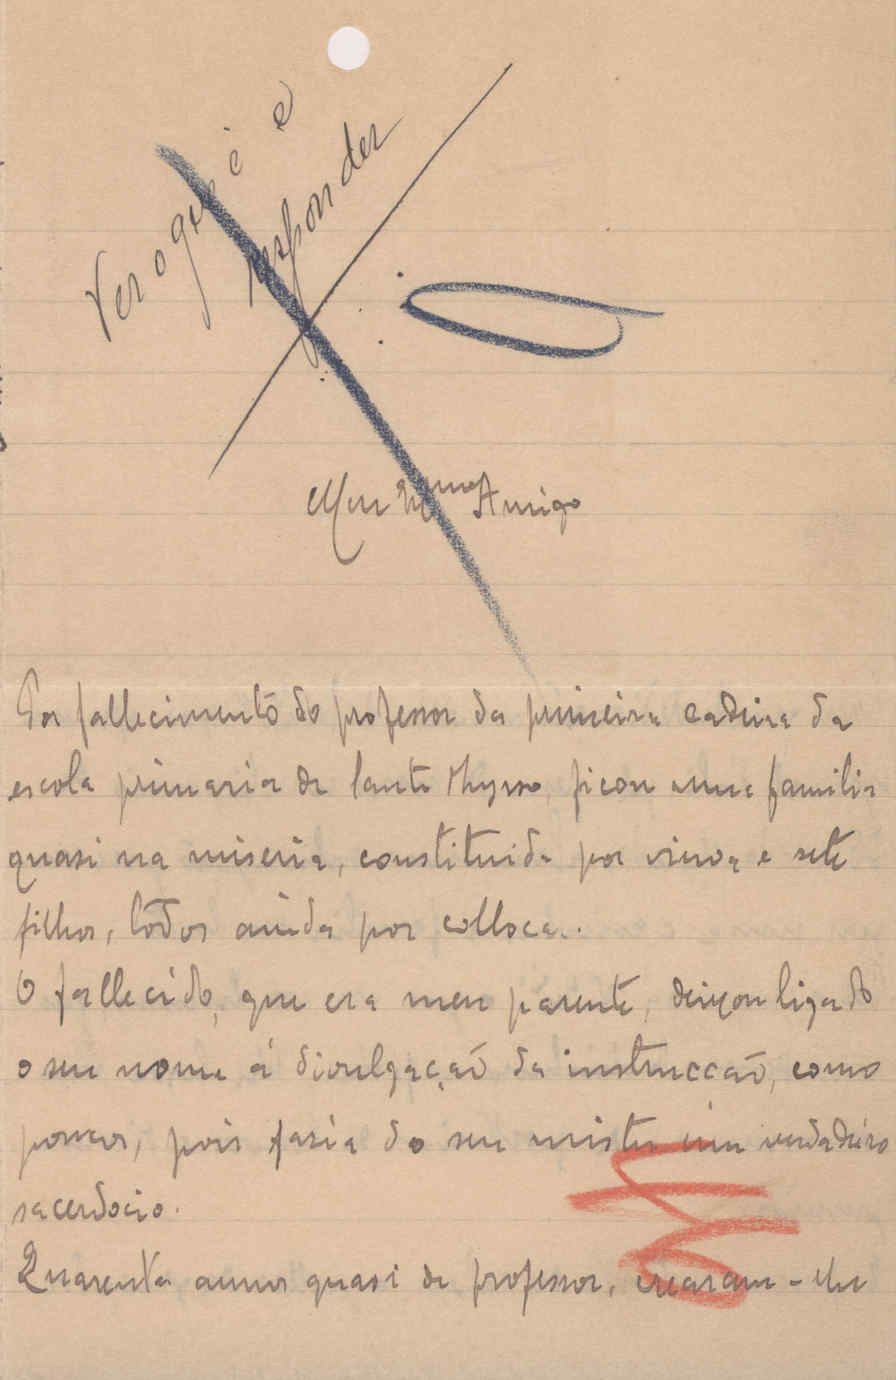 Ver o que é e
responder
Meu Exmo Amigo
Por fallecimento do professor da primeira cadeira da
escola primaria de Santo Thyrso, ficou uma familia
quasi na miseria, constituida por viuva e sete
filhos, todos ainda por collocar.
O fallecido, que era meu parente, deixou ligado
o seu nome á divulgação da instrucção, como
poucos, pois fazia do seu mister um verdadeiro
sacerdocio.
Quarenta annos quasi de professor, crearam-lhe